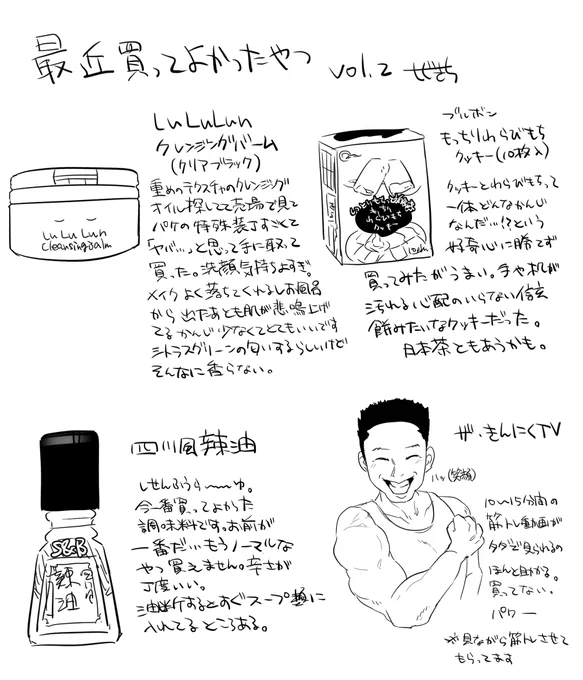 最近買ってよかったやつ vol.2 ぜぜち
LuLuLun
クレンジングバーム
(クリアブラック)
重めのテクスチャのクレンジング
オイル探してて売場で見て
パケの特殊装丁すごくて
「ヤバ…」と思って手に取って
買った。洗顔気持ちよすぎ。
メイクよく落ちてくれるしお風呂
から出たあとも肌が悲鳴上げ
てるかんじ少なくてとてもいいです
シトラスグリーンの匂いするらしいけど
そんなに香らない。
LuLuLun
cleansing balm
ブルボン
もっちりわらびもち
クッキー(10枚入)
クッキーとわらびもちって
一体どんなかんじ
なんだ…!?という
好奇心に勝てず
買ってみたがうまい。手や机が
汚れる心配のいらない信玄
餅みたいなクッキーだった。
日本茶ともあうかも。
わらびもち
クッキー
四川風辣油
しせんふうらーーーゆ。
今一番買ってよかった
調味料です。お前が
一番だ…もうノーマルな
やつ買えません。辛さが
丁度いい。
油断するとすぐスープ麺に
入れてるところある。
S&B
辣油
ザ・きんにくTV
ハッ(笑顔)
10〜15分間の
筋トレ動画が
タダで見られるの
ほんと助かる。
買ってない。
パワー
※見ながら筋トレさせて
もらってます